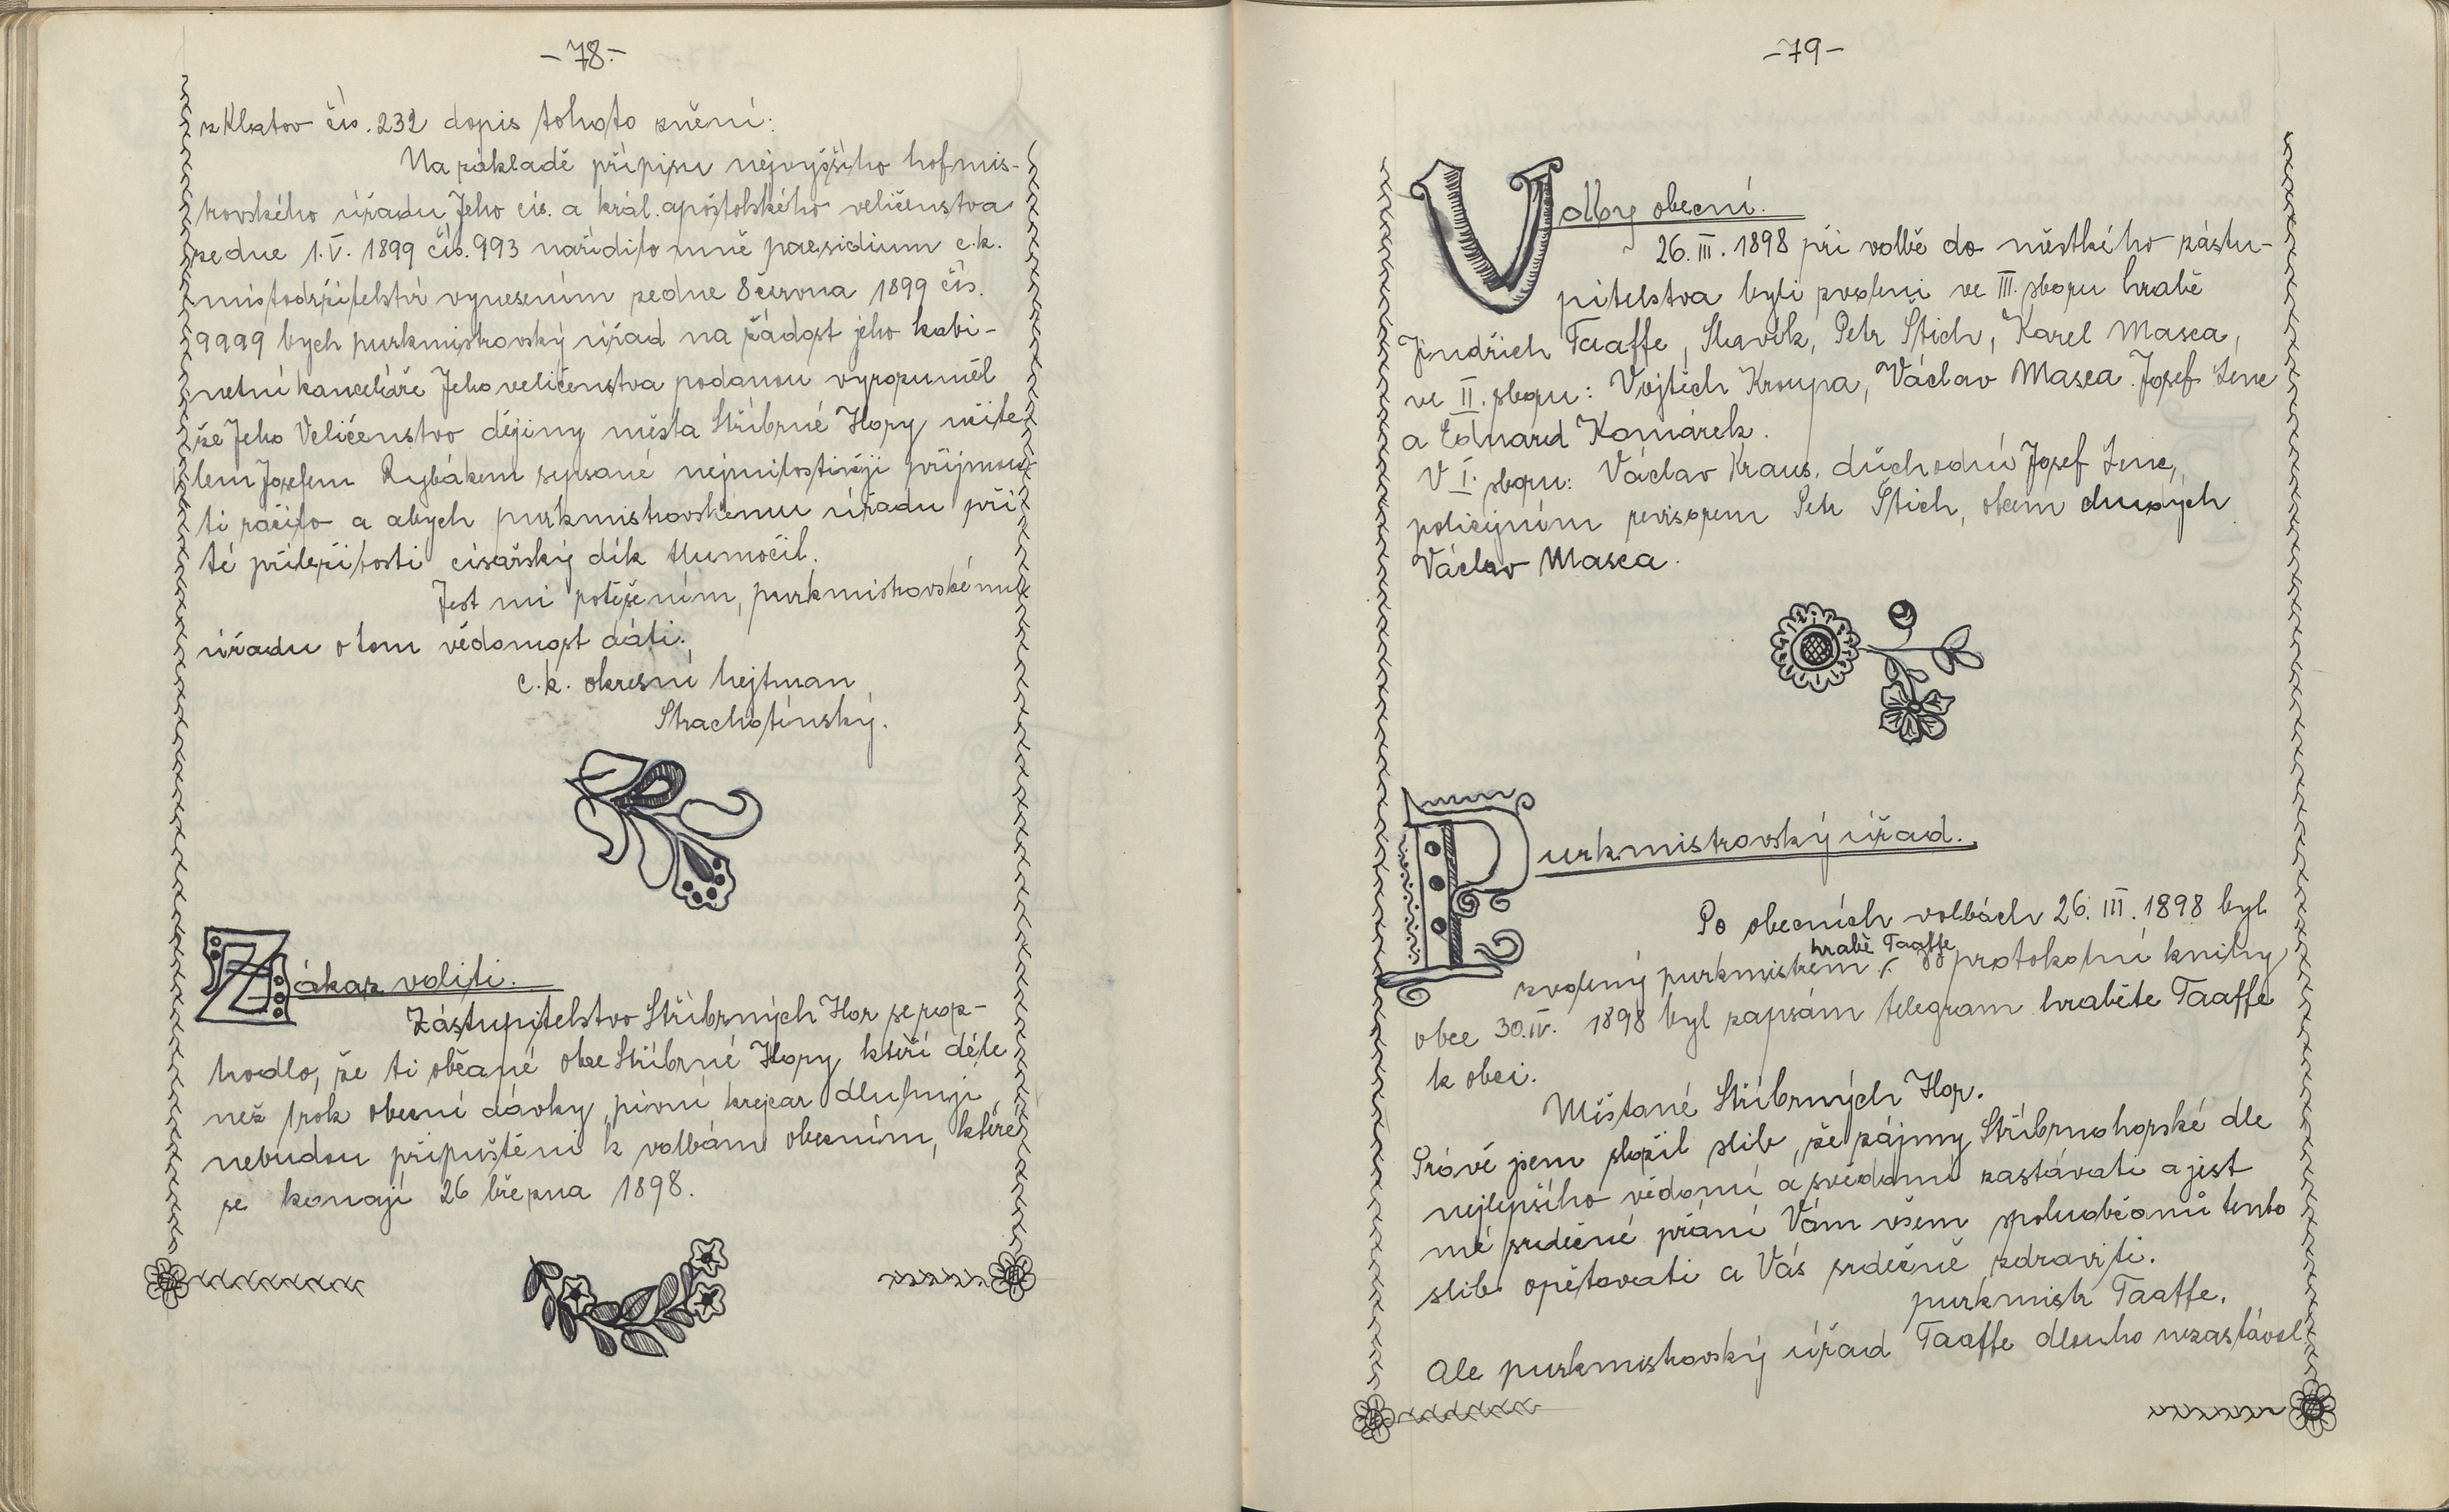 -78.-
z Klatov čís. 232 dopis tohoto znění:
Na základě přípisu nejvyššího hofmis-
trovského úřadu Jeho cís. a král. apoštolského veličenstva
ze dne 1. V. 1899 čís. 993 nařídilo mně praesidium c. k.
místodržitelství vynesením ze dne 8 června 1899 čís.
9999 bych purkmistrovský úřad na žádost jeho kabi-
netní kanceláře Jeho veličenstva podanou vyrozuměl
že Jeho Veličenstvo dějiny města Stříbrné Hory učite
lem Josefem Rybákem sepsané nejmilostivěji přijmou
ti ráčilo a abych purkmistrovskému úřadu při
té příležitosti císařský dík tlumočil.
Jest mi potěšením, purkmistrovskému
úřadu o tom vědomost dáti.
c. k. okresní hejtman
Strachotínský.
Zákaz voliti.
Zástupitelstvo Stříbrných Hor se roz-
hodlo, že ti občané obce Stříbrné Hory, kteří déle
než 1 rok obecní dávky, pivní krejcar dlužují,
nebudou připuštěni k volbám obecním, které
se konají 26 března 1898.
-79-
Volby obecní.
26. III. 1898 při volbě do městkého zástu-
pitelstva byli zvoleni ve III. sboru hrabě
Jindřich Taaffe, Slavík, Petr Štich, Karel Masca,
ve II. sboru: Vojtěch Kroupa, Václav Masca. Josef Lenc
a Eduard Komárek.
V I. sboru: Václav Kraus, důchodní Josef Lenc,
policejním revisorem Petr Štich, obcím
Václav Masca.
Purkmistrovský úřad.
Po obecních volbách 26. III. 1898 byl
hrabě Taaffe
zvolený purkmistrem protokolní knihy
obce 30. IV. 1898 byl zapsám telegram hraběte Taaffe
k obci.
Měštané Stříbrných Hor.
Právě jsem složil slib, že zájmy Stříbrnohorské dle
nejlepšího vědomí a svědomí zastávati a jest
mé srdečné přání Vám všem spoluobčanů tento
slib opětovati a Vás srdečně zdraviti.
purkmistr Taaffe.
Ale purkmistrovský úřad Taaffe dlouho nezastával